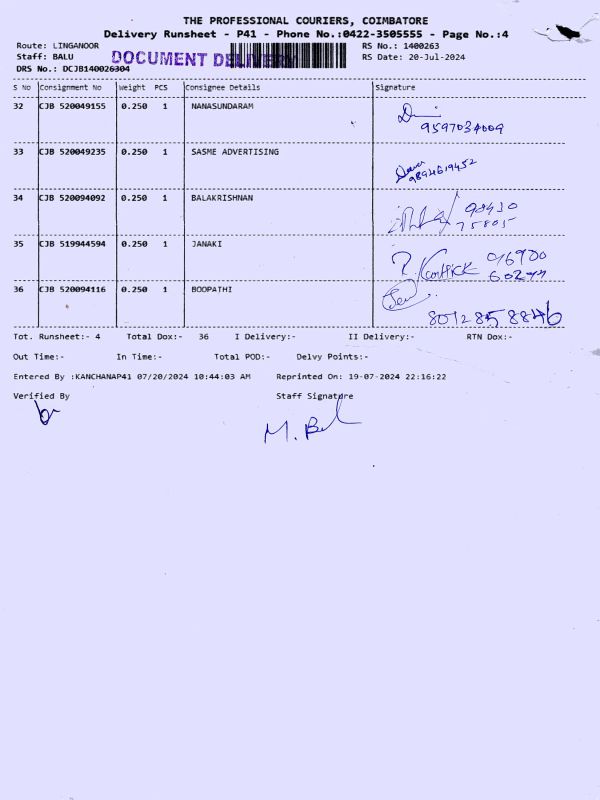 THE PROFESSIONAL COURIERS, COIMBATORE
Delivery Runsheet - P41 - Phone No.:0422-3505555 - Page No.:4
Route: LINGANOOR RS No.: 1400263
Staff: BALU DOCUMENT DELIVERY RS Date: 20-Jul-2024
DRS No.: DCJB140026304
S No Consignment No Weight PCS Consignee Details Signature
32 CJB 520049155 0.250 1 NANASUNDARAM
9597034009
33 CJB 520049235 0.250 1 SASME ADVERTISING
9894619452
34 CJB 520094092 0.250 1 BALAKRISHNAN
98430
75805
35 CJB 519944594 0.250 1 JANAKI
R. Karthick
36 CJB 520094116 0.250 1 BOOPATHI
8012858846
Tot. Runsheet:- 4 Total Dox:- 36 I Delivery:- II Delivery:- RTN Dox:-
Out Time:- In Time:- Total POD:- Delvy Points:-
Entered By :KANCHANAP41 07/20/2024 10:44:03 AM Reprinted On: 19-07-2024 22:16:22
Verified By Staff Signatdre